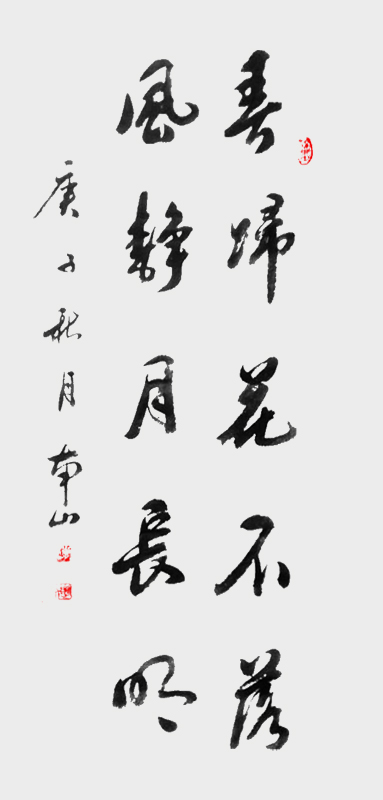 春歸花不落
風靜月長明
庚子秋月南山